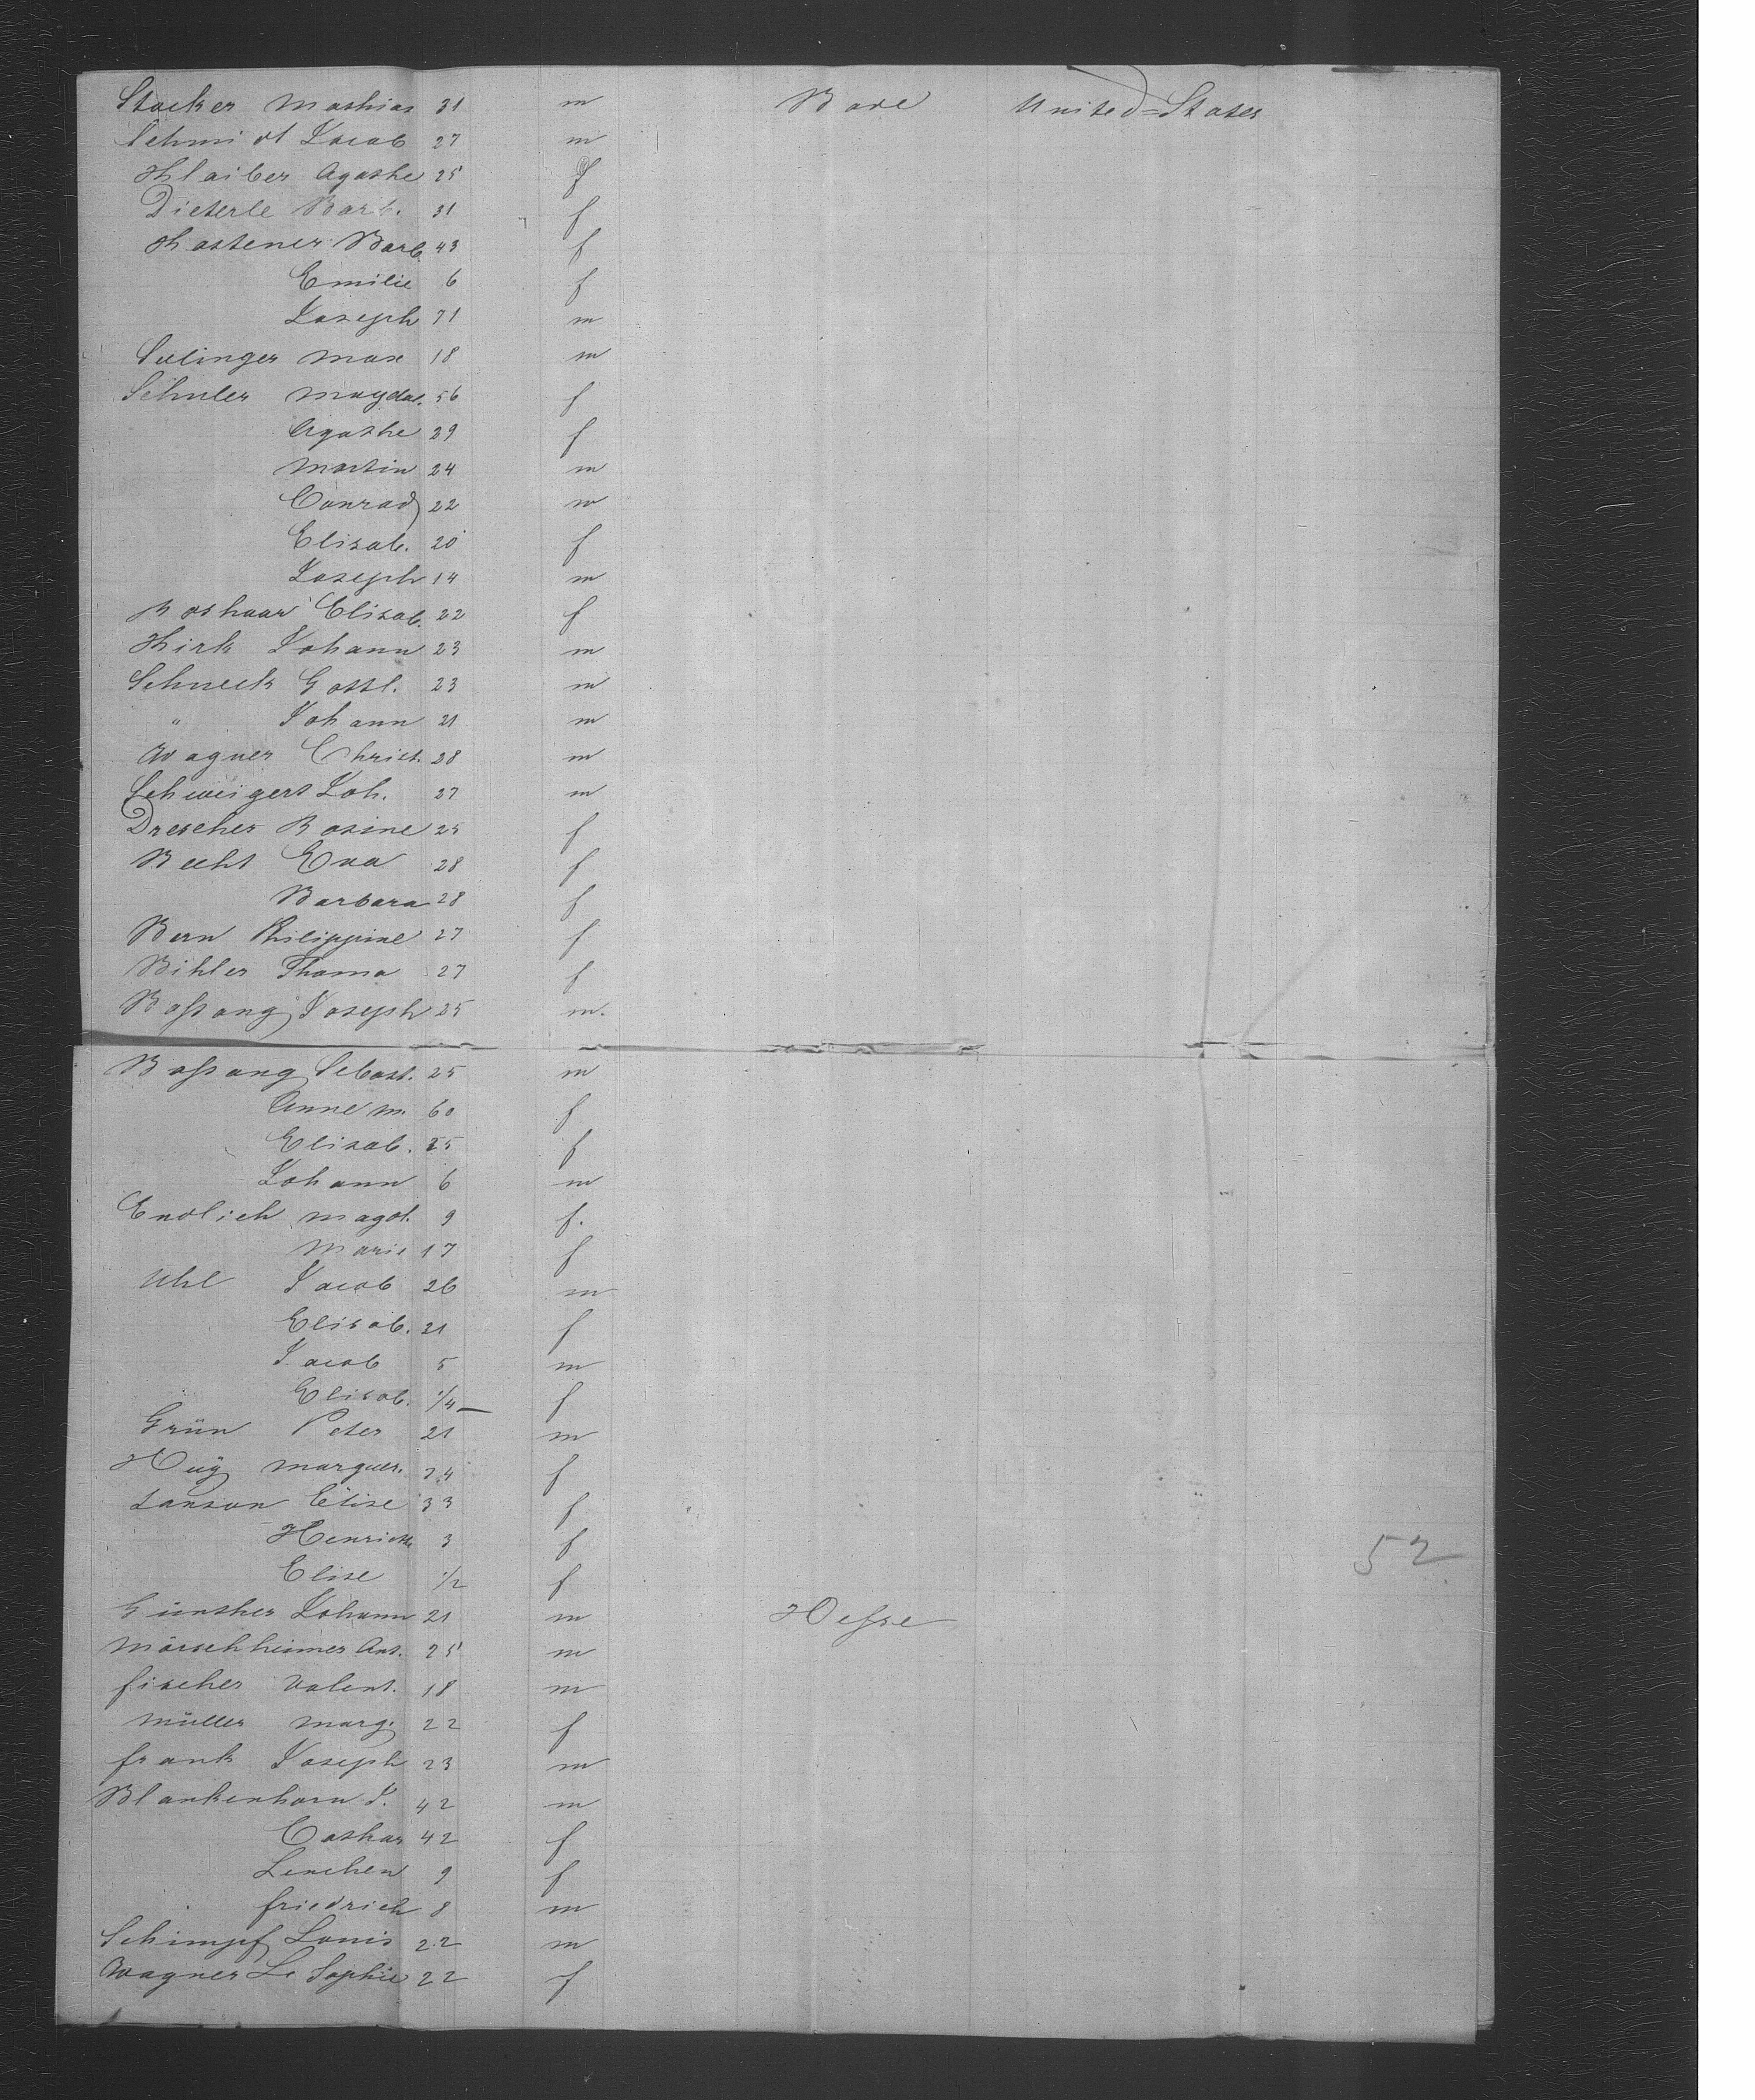 Stocker Mathias 31 m Bade United=States
Schmidt Jacob 27 m
Klaiber Agathe 25 f
Dieterle Barb. 31 f
Kastener Barb. 43 f
Emilie 6 f
Joseph 71 m
Seelinger Max 18 m
Schuler Magdal. 56 f
Agathe 29 f
Martin 24 m
Conrad 22 m
Elisab. 20 f
Joseph 14 m
Roshaar Elisab. 22 f
Kirk Johann 23 m
Schneck Gottl. 23 m
" Johann 21 m
Wagner Christ. 28 m
Schweigert Joh. 27 m
Drescher Rosine 25 f
Becht Eva 28 f
Barbara 28 f
Bern Philippine 27 f
Bihler Thoma 27 f
Boßang Joseph 25 m.
Boßang Sebast. 25 m
Anne M. 60 f
Elisab. 25 f
Johann 6 m
Endlich Magd. 9 f.
Marie 17 f
Uhl Jacob 26 m
Elisab. 21 f
Jacob 5 m
Elisab. 1/4 f
Grün Peter 21 m
Huÿ Marguer. 24 f
Janson Elise 33 f
Henriette 3 f 52
Elise 1/2 f
Günther Johann 21 m Heſse
Mörschheimer Ant. 25 m
fischer Valent. 18 m
Müller Marg. 22 f
frank Joseph 23 m
Blankenhorn J. 42 m
Cathar 42 f
Lenchen 9 f
friedrich 8 m
Schimpf Louis 22 m
Wagner Sophie 22 f